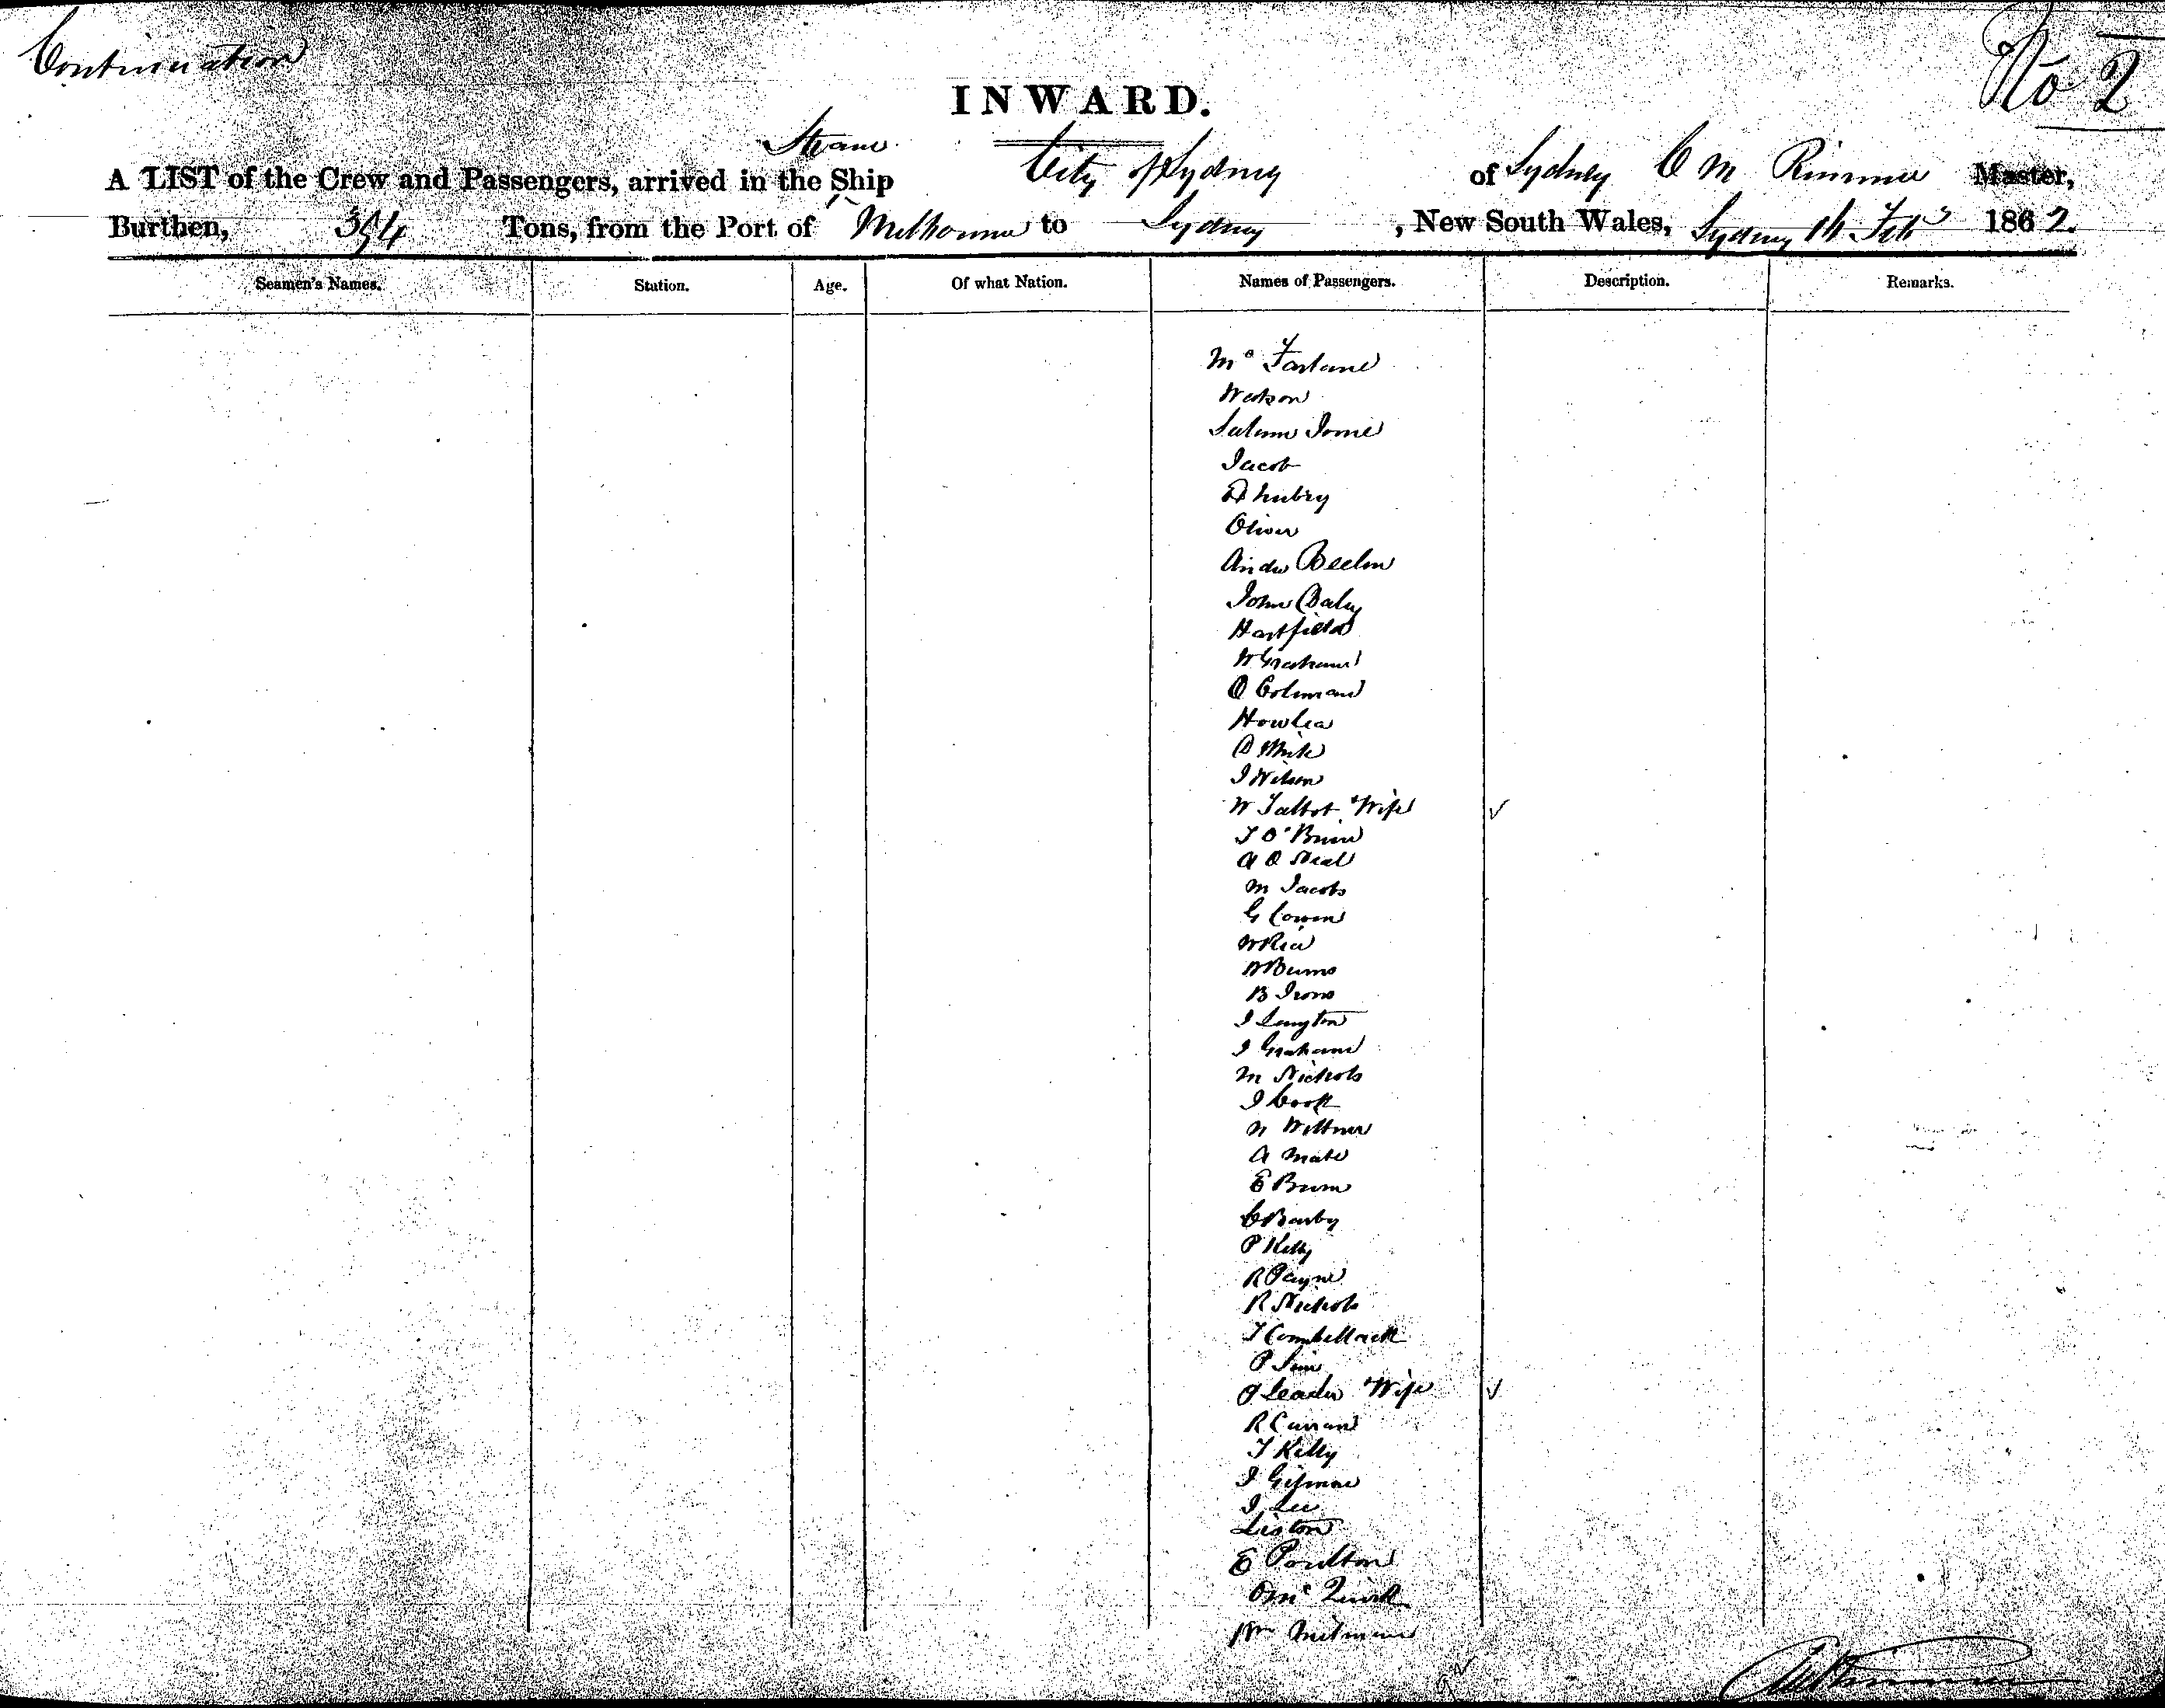 Continuation
No 2
INWARD.
Steam
A LIST of the Crew and Passengers, arrived in the Ship City of Sydney of Sydney C M Rimmer Master,
Burthen, Tons, from the Port of Melbourne to Sydney , New South Wales, Sydney Feb 1862.
Seamen's Names. Station. Age. Of what Nation. Names of Passengers. Description. Remarks.
Mc Farlane
Watson
Jacob
Oliver
Beelen
John Daly
Hartfield
W Graham
O Colman
D White
J Wilson
W Talbot & Wife
T O'Brien
A O Neal
M Jacobs
G Cowen
W Rea
W Burns
B Irons
J Langton
J Graham
M Nichols
J Cook
N Wittner
A Mate
E Brown
C Barby
P Kelly
R Payne
R Nichols
T Combellack
P Sim
Leader & Wife
R Curran
T Kelly
J
J Lee
Liston
E Poulton
Mc Quirk
Wm